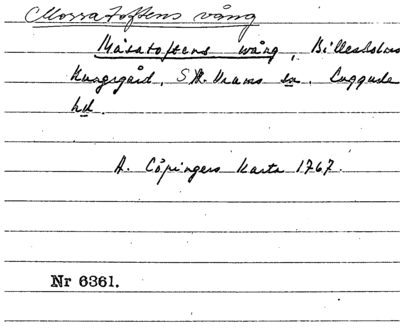 Mossatoftens vång
Måsatoftens wång, Billesholms
Kungsgård, S.N. Vrams sn. Luggude
hd.
A. Cöpingers karta 1767.
Nr 6361.